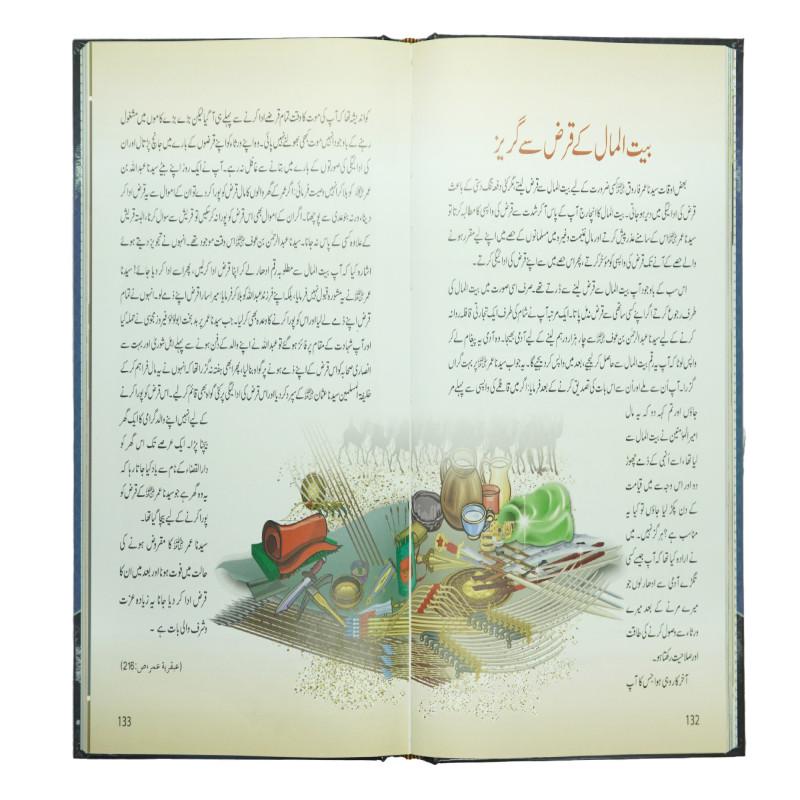 بیت المال کے قرض سے گریز
بعض اوقات سیدنا عمر فاروق ﷜ کسی ضرورت کے لیے بیت المال سے قرض لیتے مگر کئی دفعہ تنگ دستی کے باعث
قرض کی ادائیگی میں دیر ہو جاتی۔ بیت المال کا انچارج آپ کے پاس آکر شدت سے قرض کی واپسی کا مطالبہ کرتا تو
سیدنا عمر ﷜ اس کے سامنے عذر پیش کرتے اور مال غنیمت وغیرہ میں مسلمانوں کے حصے میں اپنے لیے مقرر ہونے
والے حصے کے آنے تک قرض کی واپسی کو مؤخر کرتے، پھر اس حصے میں سے اپنے قرض کی ادائیگی کرتے۔
اس سب کے باوجود آپ بیت المال سے قرض لینے سے ڈرتے تھے۔ صرف اسی صورت میں بیت المال کی
طرف رجوع کرتے اگر اپنے کسی ساتھی سے قرض نہ مل پاتا۔ ایک مرتبہ آپ نے شام کی طرف ایک تجارتی قافلہ روانہ
کرنے کے لیے سیدنا عبدالرحمٰن بن عوف ﷜ سے چار ہزار درہم لینے کے لیے آدمی بھیجا۔ وہ آدمی یہ پیغام لے کر
واپس لوٹا کہ آپ یہ رقم بیت المال سے حاصل کر لیجیے، بعد میں واپس کر دیجیے گا۔ یہ جواب سیدنا عمر ﷜ پر بہت گراں
گزرا۔ آپ اُن سے ملے اور اُن سے اس بات کی تصدیق کرنے کے بعد فرمایا: اگر میں قافلے کی واپسی سے پہلے مر
جاؤں اور تم کہہ دو کہ یہ مال
امیرالمؤمنین نے بیت المال سے
لیا تھا، اسے اُنہی کے ذمے چھوڑ
دو اور اس وجہ سے میں قیامت
کے دن پکڑ لیا جاؤں تو کیا یہ
مناسب ہے؟ ہرگز نہیں۔ میں
نے ارادہ کیا تھا کہ آپ جیسے کسی
تگڑے آدمی سے ادھار لوں جو
میرے مرنے کے بعد میرے
ورثاء سے وصول کرنے کی طاقت
اور صلاحیت رکھتا ہو۔
آخر کار وہی ہوا جس کا آپ
132
کو اندیشہ تھا کہ آپ کی موت کا وقت تمام قرضے ادا کرنے سے پہلے ہی آ گیا لیکن بڑے بڑے کاموں میں مشغول
رہنے کے باوجود انہیں موت کبھی بھولنے نہیں پائی۔ وہ اپنے ورثاء کو اپنے قرضوں کے بارے میں جانچ پڑتال اور ان
کی ادائیگی کی صورتوں کے بارے میں بتانے سے غافل نہ رہے۔ آپ نے ایک روز اپنے بیٹے سیدنا عبداللہ بن
عمر ﷠ کو بلا کر انہیں وصیت فرمائی: اگر عمر کے گھر والوں کا مال قرض کو پورا کر دے تو ان کے اموال سے یہ قرض ادا کر
دینا، ورنہ بنوعدی سے پوچھنا۔ اگر ان کے اموال بھی اس قرض کو پورا نہ کر سکیں تو قریش سے سوال کرنا، البتہ قریش
کے علاوہ کسی کے پاس نہ جانا۔ سیدنا عبدالرحمٰن بن عوف ﷜ اس وقت موجود تھے۔ انہوں نے تجویز دیتے ہوئے
اشارہ کیا کہ آپ بیت المال سے مطلوبہ رقم ادھار لے کر اپنا قرض ادا کر لیں، پھر اسے ادا کر دیا جائے گا! سیدنا
عمر ﷜ نے یہ مشورہ قبول نہیں فرمایا، بلکہ اپنے فرزند عبداللہ کو بلا کر فرمایا: میرا سارا قرض اپنے ذمے لو۔ انہوں نے تمام
قرض اپنے ذمے لے لیا اور اس کو پورا کرنے کا وعدہ بھی کر لیا۔ جب سیدنا عمر پر بدبخت ابولؤلؤ فیروز مجوسی نے حملہ کیا
اور آپ شہادت کے مقام پر فائز ہو گئے تو عبداللہ نے اپنے والد کے دفن ہونے سے پہلے اہل شوریٰ اور بہت سے
انصاری صحابہ کو اس قرض کے اپنے ذمے ہونے پر گواہ بنا لیا، پھر ابھی ہفتہ نہ گزرا تھا کہ انہوں نے یہ مال فراہم کر کے
خلیفۃ المسلمین سیدنا عثمان ﷜ کے سپرد کر دیا اور اس قرض کی ادائیگی پر کئی گواہ بھی قائم کر لیے۔ اس قرض کو پورا کرنے
کے لیے انہیں اپنے والد گرامی کا ایک گھر
بیچنا پڑا۔ ایک عرصے تک اس گھر کو
دارالقضاء کے نام سے یاد کیا جاتا رہا کہ
یہ وہ گھر ہے جو سیدنا عمر ﷜ کے قرض کو
پورا کرنے کے لیے بیچا گیا تھا۔
سیدنا عمر ﷜ کا مقروض ہونے کی
حالت میں فوت ہونا اور بعد میں ان کا
قرض ادا کر دیا جانا یہ زیادہ عزت
و شرف والی بات ہے۔
(عبقرية عمر، ص: 216)
133